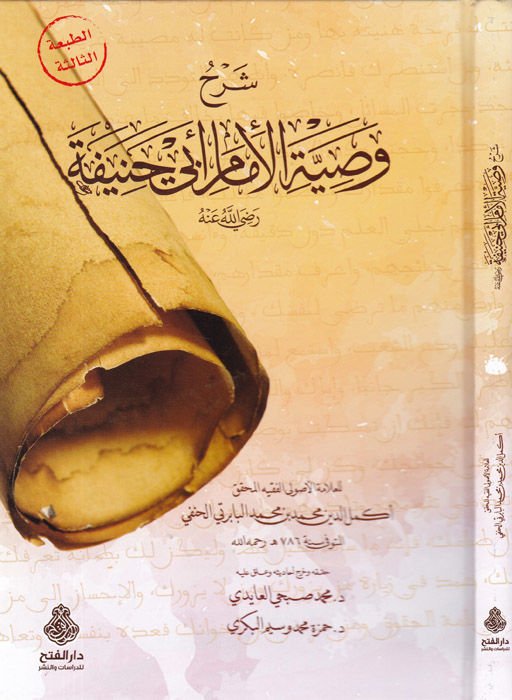 الطبعة
الثالثة
شَرْحُ
وَصِيَّةِ الْإِمَامِ أَبِي حَنِيفَةَ
رَضِيَ اللَّهُ عَنْهُ
للعلامة الأصولي الفقيه المحقق
أكمل الدين محمد بن محمد البابرتي الحنفي
المتوفى سنة ٧٨٦ هـ رحمه الله
حققه وخرج أحاديثه وعلق عليه
د. محمد صبحي العايدي
د. حمزة محمد وسيم البكري
دار الفتح
للدراسات والنشر
شَرْحُ
وَصِيَّةِ الْإِمَامِ أَبِي حَنِيفَةَ
رَضِيَ اللَّهُ عَنْهُ
للعلامة الأصولي الفقيه المحقق
أكمل الدين محمد بن محمد البابرتي الحنفي
دار الفتح
للدراسات والنشر